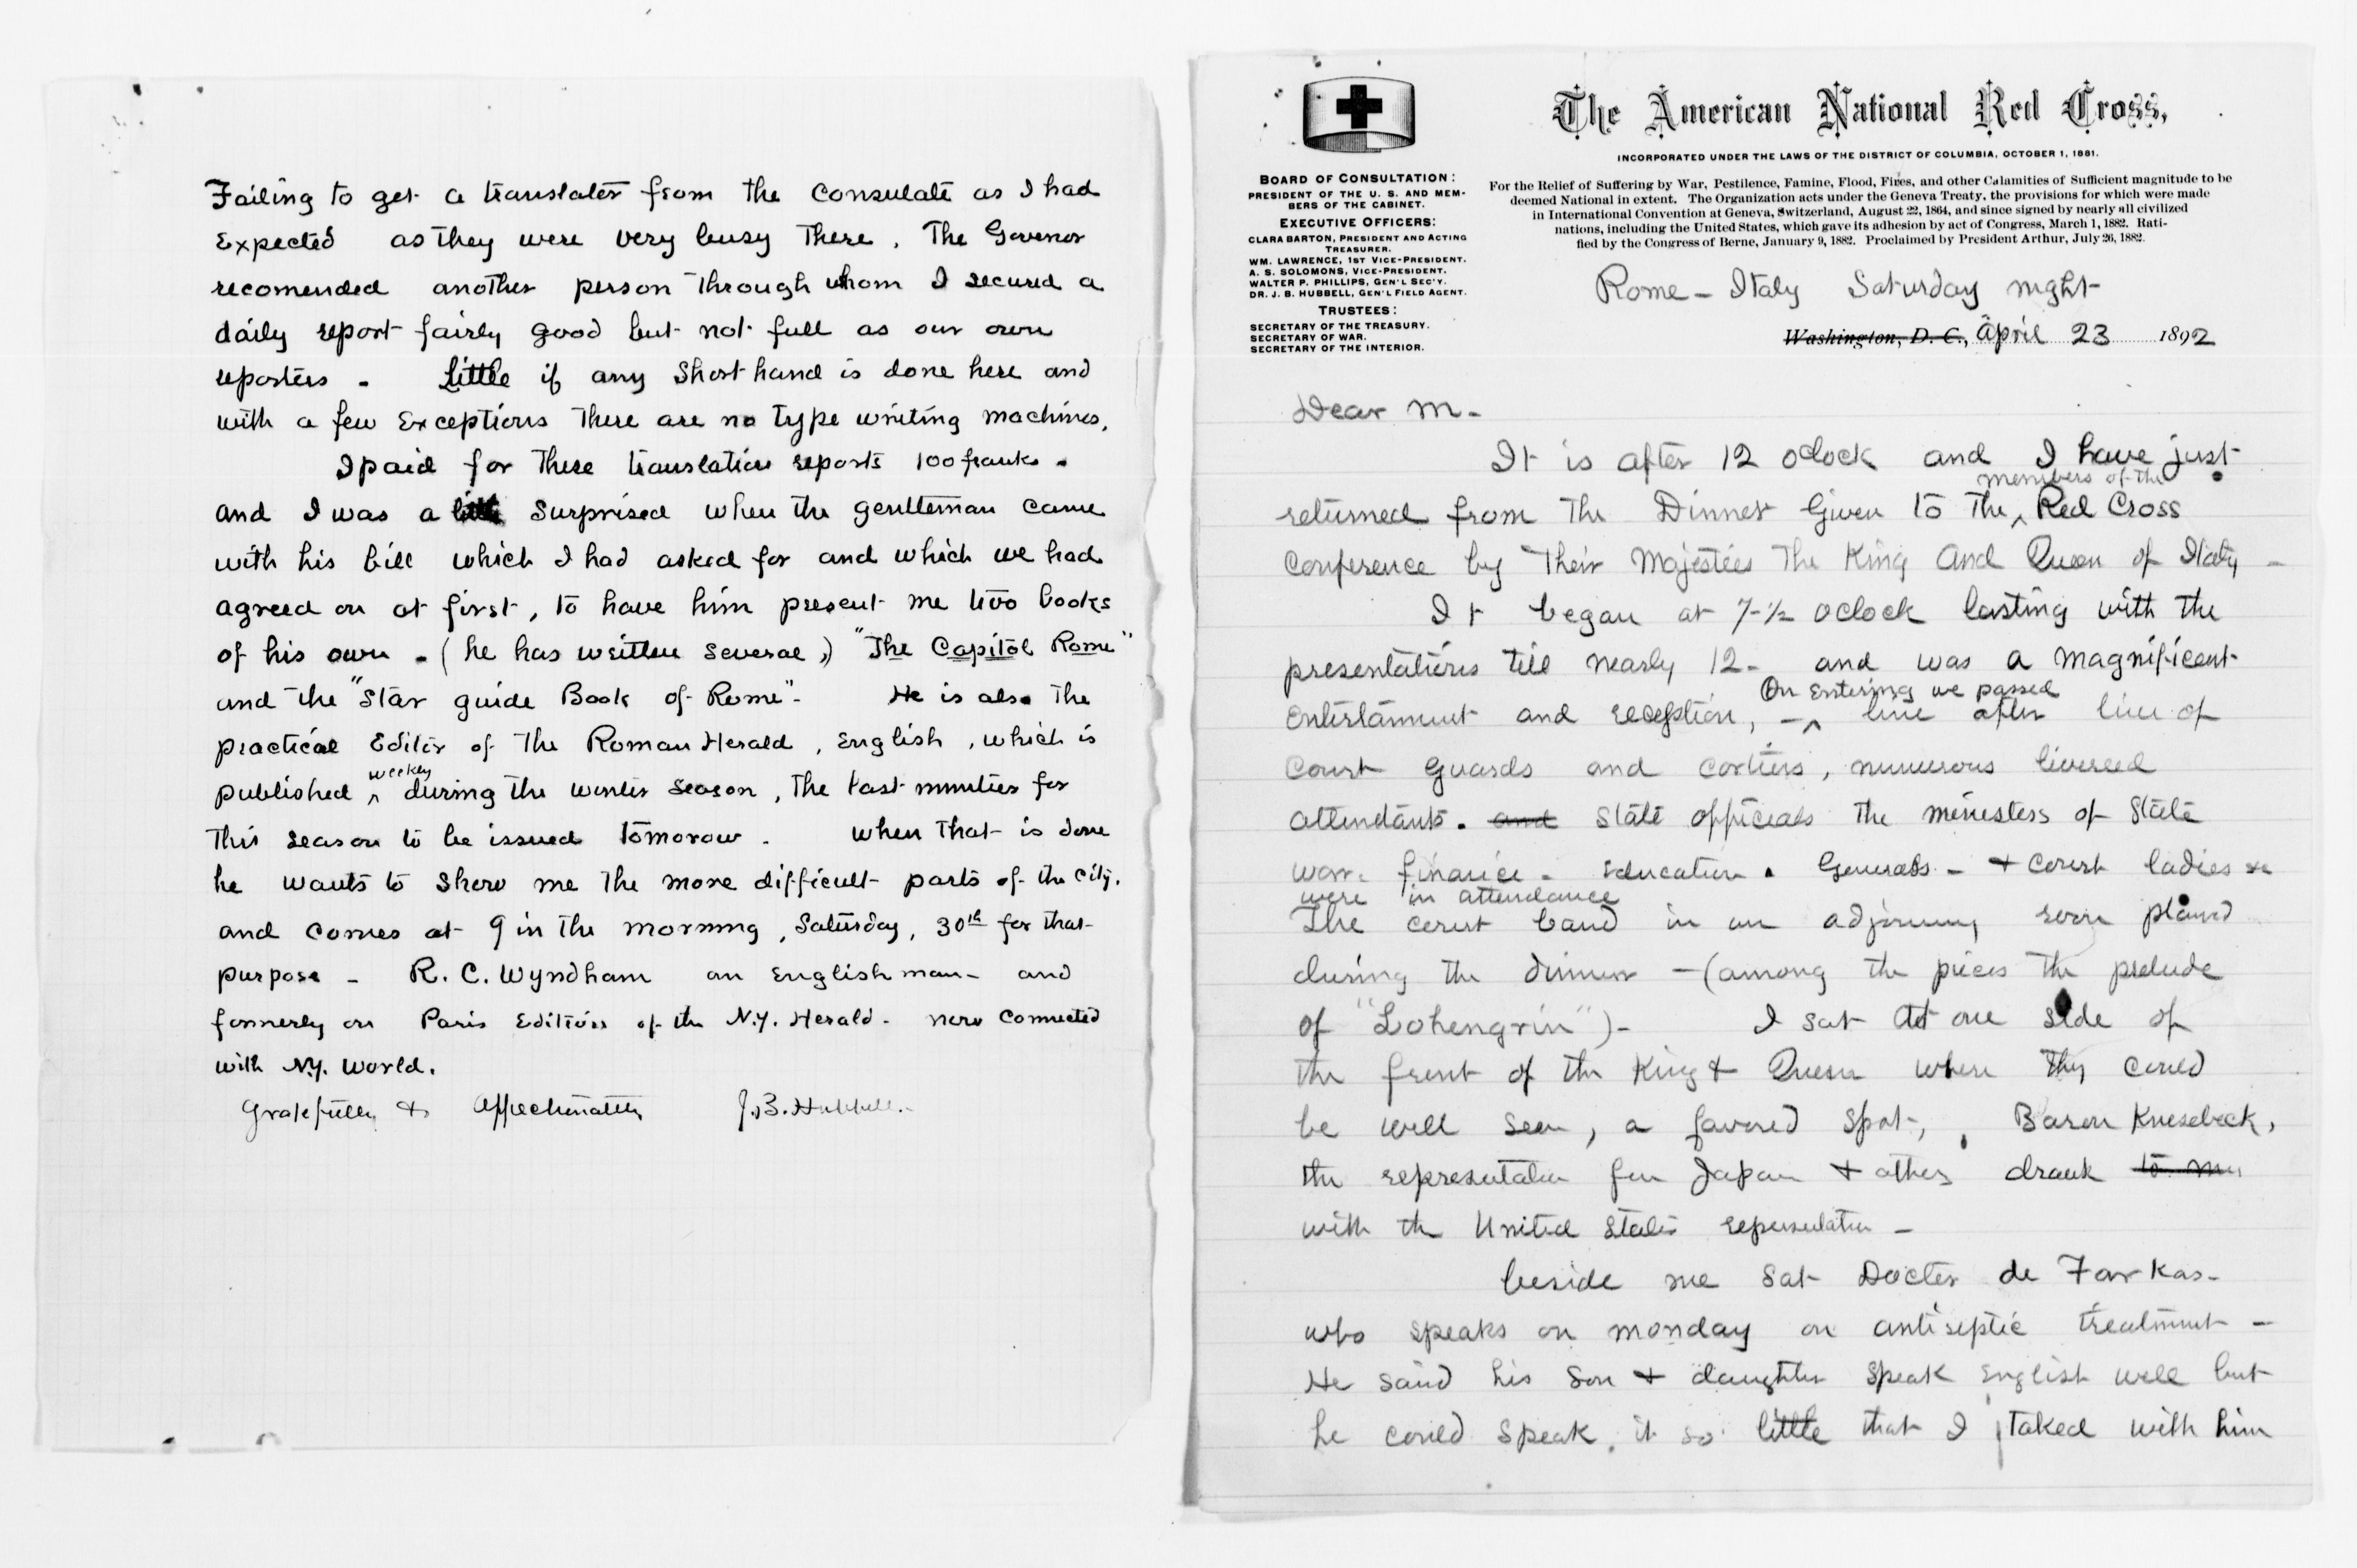 Failing to get a translater from the Consulate as I had
Expected as they were very busy there. The Govenor
recomended another person through whom I secured a
daily report fairly good but not full as our own
reporters - Little if any Short hand is done here and
with a few Exceptions there are no type writing machines.
I paid for these translation reports 100 franks -
and I was a little surprised when the gentleman came
with his bill which I had asked for and which we had
agreed on at first, to have him present me two books
of his own - (he has written several,) "The Capitol Rome"
and the "Star guide Book of Rome"- He is also the
practical Editor of The Roman Herald, English, which is
weekly
published ^ during the winter season, the last number for
this season to be issued tomorow. when that is done
he wants to show me the more difficult parts of the city.
and comes at 9 in the morning, Saturday, 30th for that
purpose - R. C. Wyndham an Englishman - and
formerly on Paris Edition of the N.Y. Herald - now connected
with N.Y. World.
Gratefully & Affectionately J. B. Hubbell.
The American National Red Cross,
INCORPORATED UNDER THE LAWS OF THE DISTRICT OF COLUMBIA, OCTOBER 1, 1881.
For the Relief of Suffering by War, Pestilence, Famine, Flood, Fires, and other Calamities of Sufficient magnitude to be
deemed National in extent. The Organization acts under the Geneva Treaty, the provisions for which were made
in International Convention at Geneva, Switzerland, August 22, 1864, and since signed by nearly all civilized
nations, including the United States, which gave its adhesion by act of Congress, March 1, 1882. Rati-
fied by the Congress of Berne, January 9, 1882. Proclaimed by President Arthur, July 26, 1882.
BOARD OF CONSULTATION:
PRESIDENT OF THE U. S. AND MEM-
BERS OF THE CABINET.
EXECUTIVE OFFICERS:
CLARA BARTON, PRESIDENT AND ACTING
TREASURER.
WM. LAWRENCE, 1ST VICE-PRESIDENT.
A. S. SOLOMONS, VICE-PRESIDENT.
WALTER P. PHILLIPS, GEN'L SEC'Y.
DR. J. B. HUBBELL, GEN'L FIELD AGENT.
TRUSTEES:
SECRETARY OF THE TREASURY.
SECRETARY OF WAR.
SECRETARY OF THE INTERIOR.
Rome - Italy Saturday night
Washington, D. C., April 23 1892
Dear M-
It is after 12 oclock and I have just
members of the
returned from the Dinner Given to the ^ Red Cross
Conference by Their Majesties The King And Queen of Italy -
It began at 7-½ oclock lasting with the
presentations till nearly 12 - and was a magnificent
On Entering we passed
Entertainment and reception, - ^ line after line of
Court Guards and cortiers, numerous liveried
attendants. and State officials the ministers of State
war. finance - Education. Generals - & court ladies &c
were in attendance
The court band in an adjoining room played
during the dinner - (among the pieces the prelude
of "Lohengrin") - I sat at one side of
the front of the King & Queen where they could
be well seen, a favored spot, Baron Knesebeck,
the representative from Japan & others drank to me
with the United States representative -
beside me sat Docter de Farkas -
who speaks on monday on antiseptic treatment -
He said his son & daughter speak English well but
he could speak it so little that I talked with him